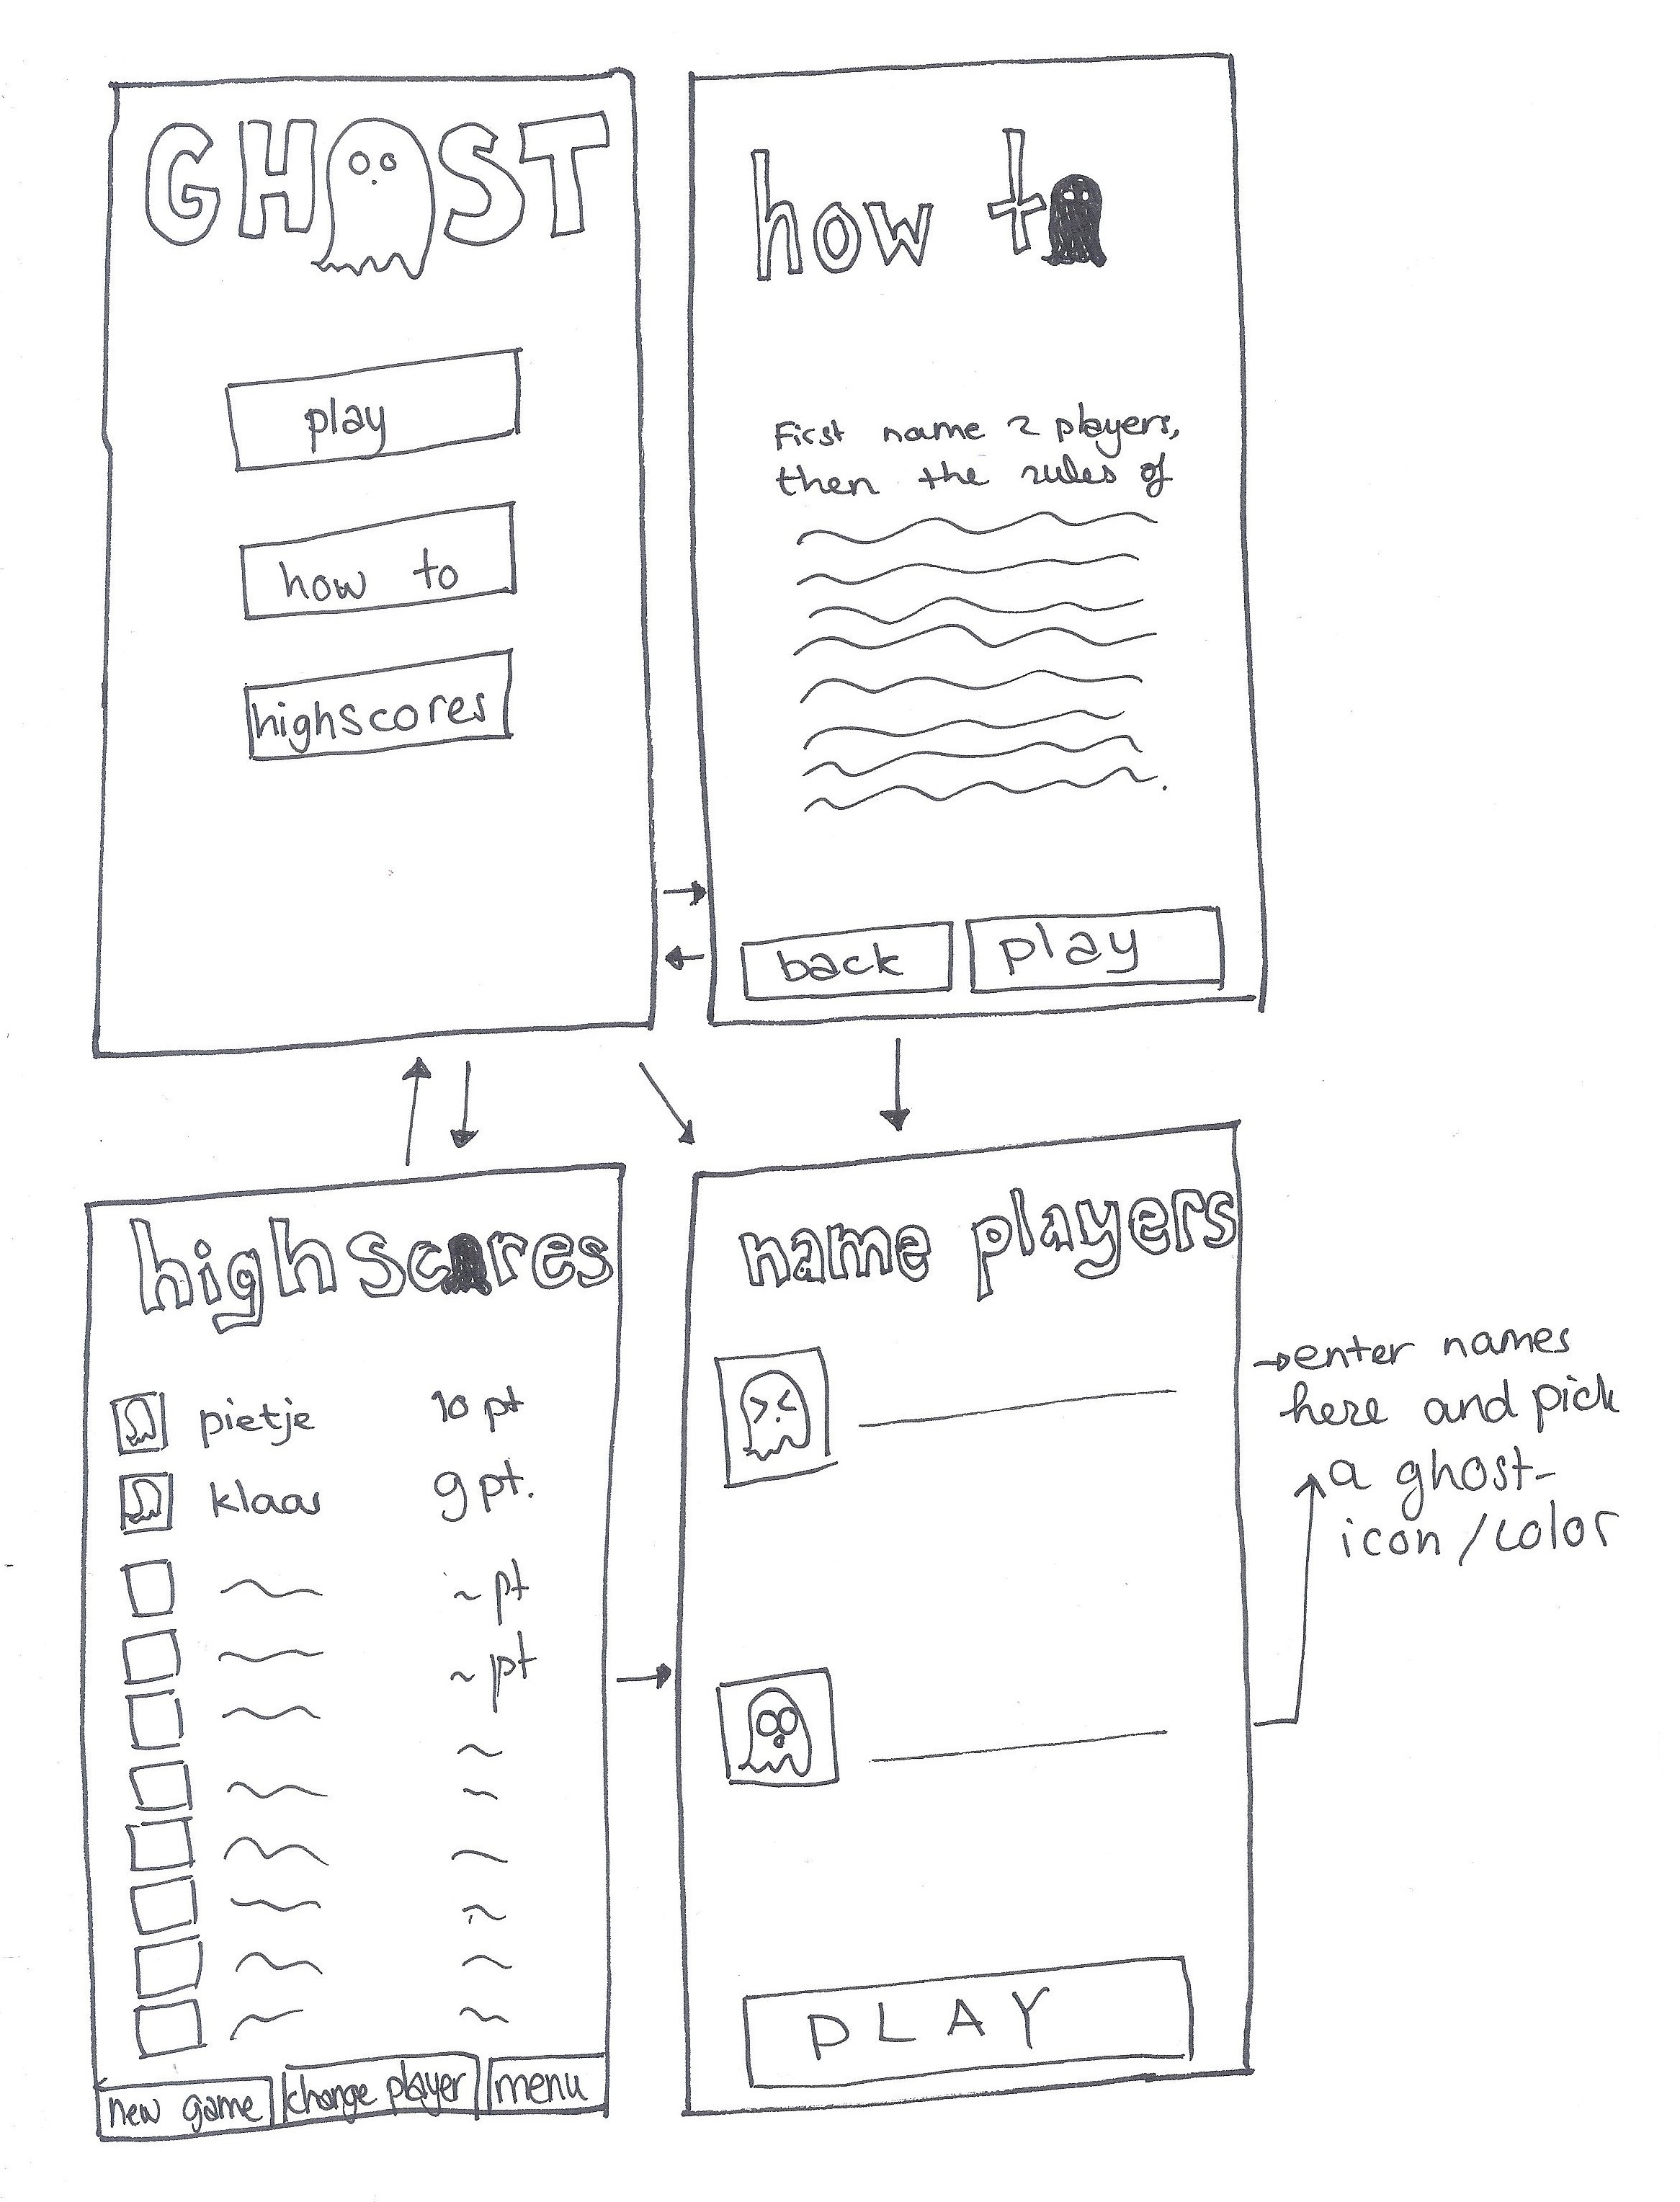 GHOST
play
how to
highscores
how to
First name 2 players,
then the rules of
back
play
highscores
pietje 10 pt
klaas 9 pt.
~ pt
~ pt
new game
change player
menu
name players
PLAY
→enter names
here and pick
a ghost-
icon/color